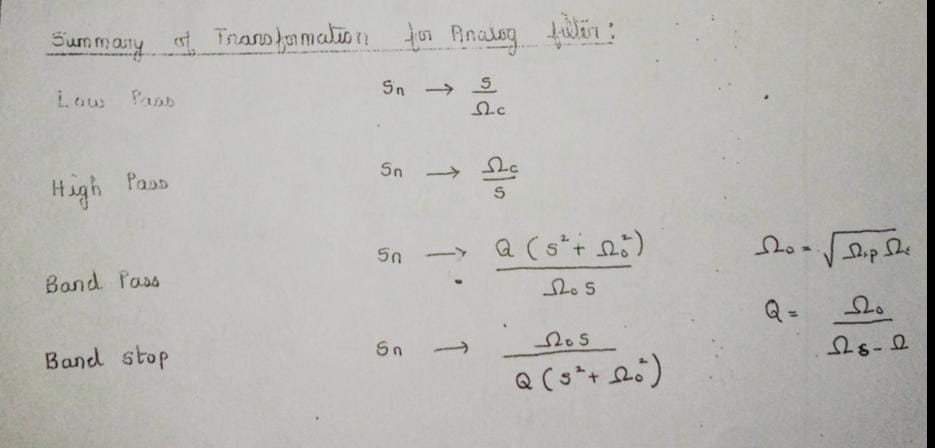 Summary of Transformation for Analog filter:
Low Pass Sn → S / Ωc
High Pass Sn → Ωc / S
Band Pass Sn → Q (S² + Ω₀²) / Ω₀ S
Ω₀ = √Ω
Q = Ω₀ / Ω
Band stop Sn → Ω₀ S / Q (S² + Ω₀²)